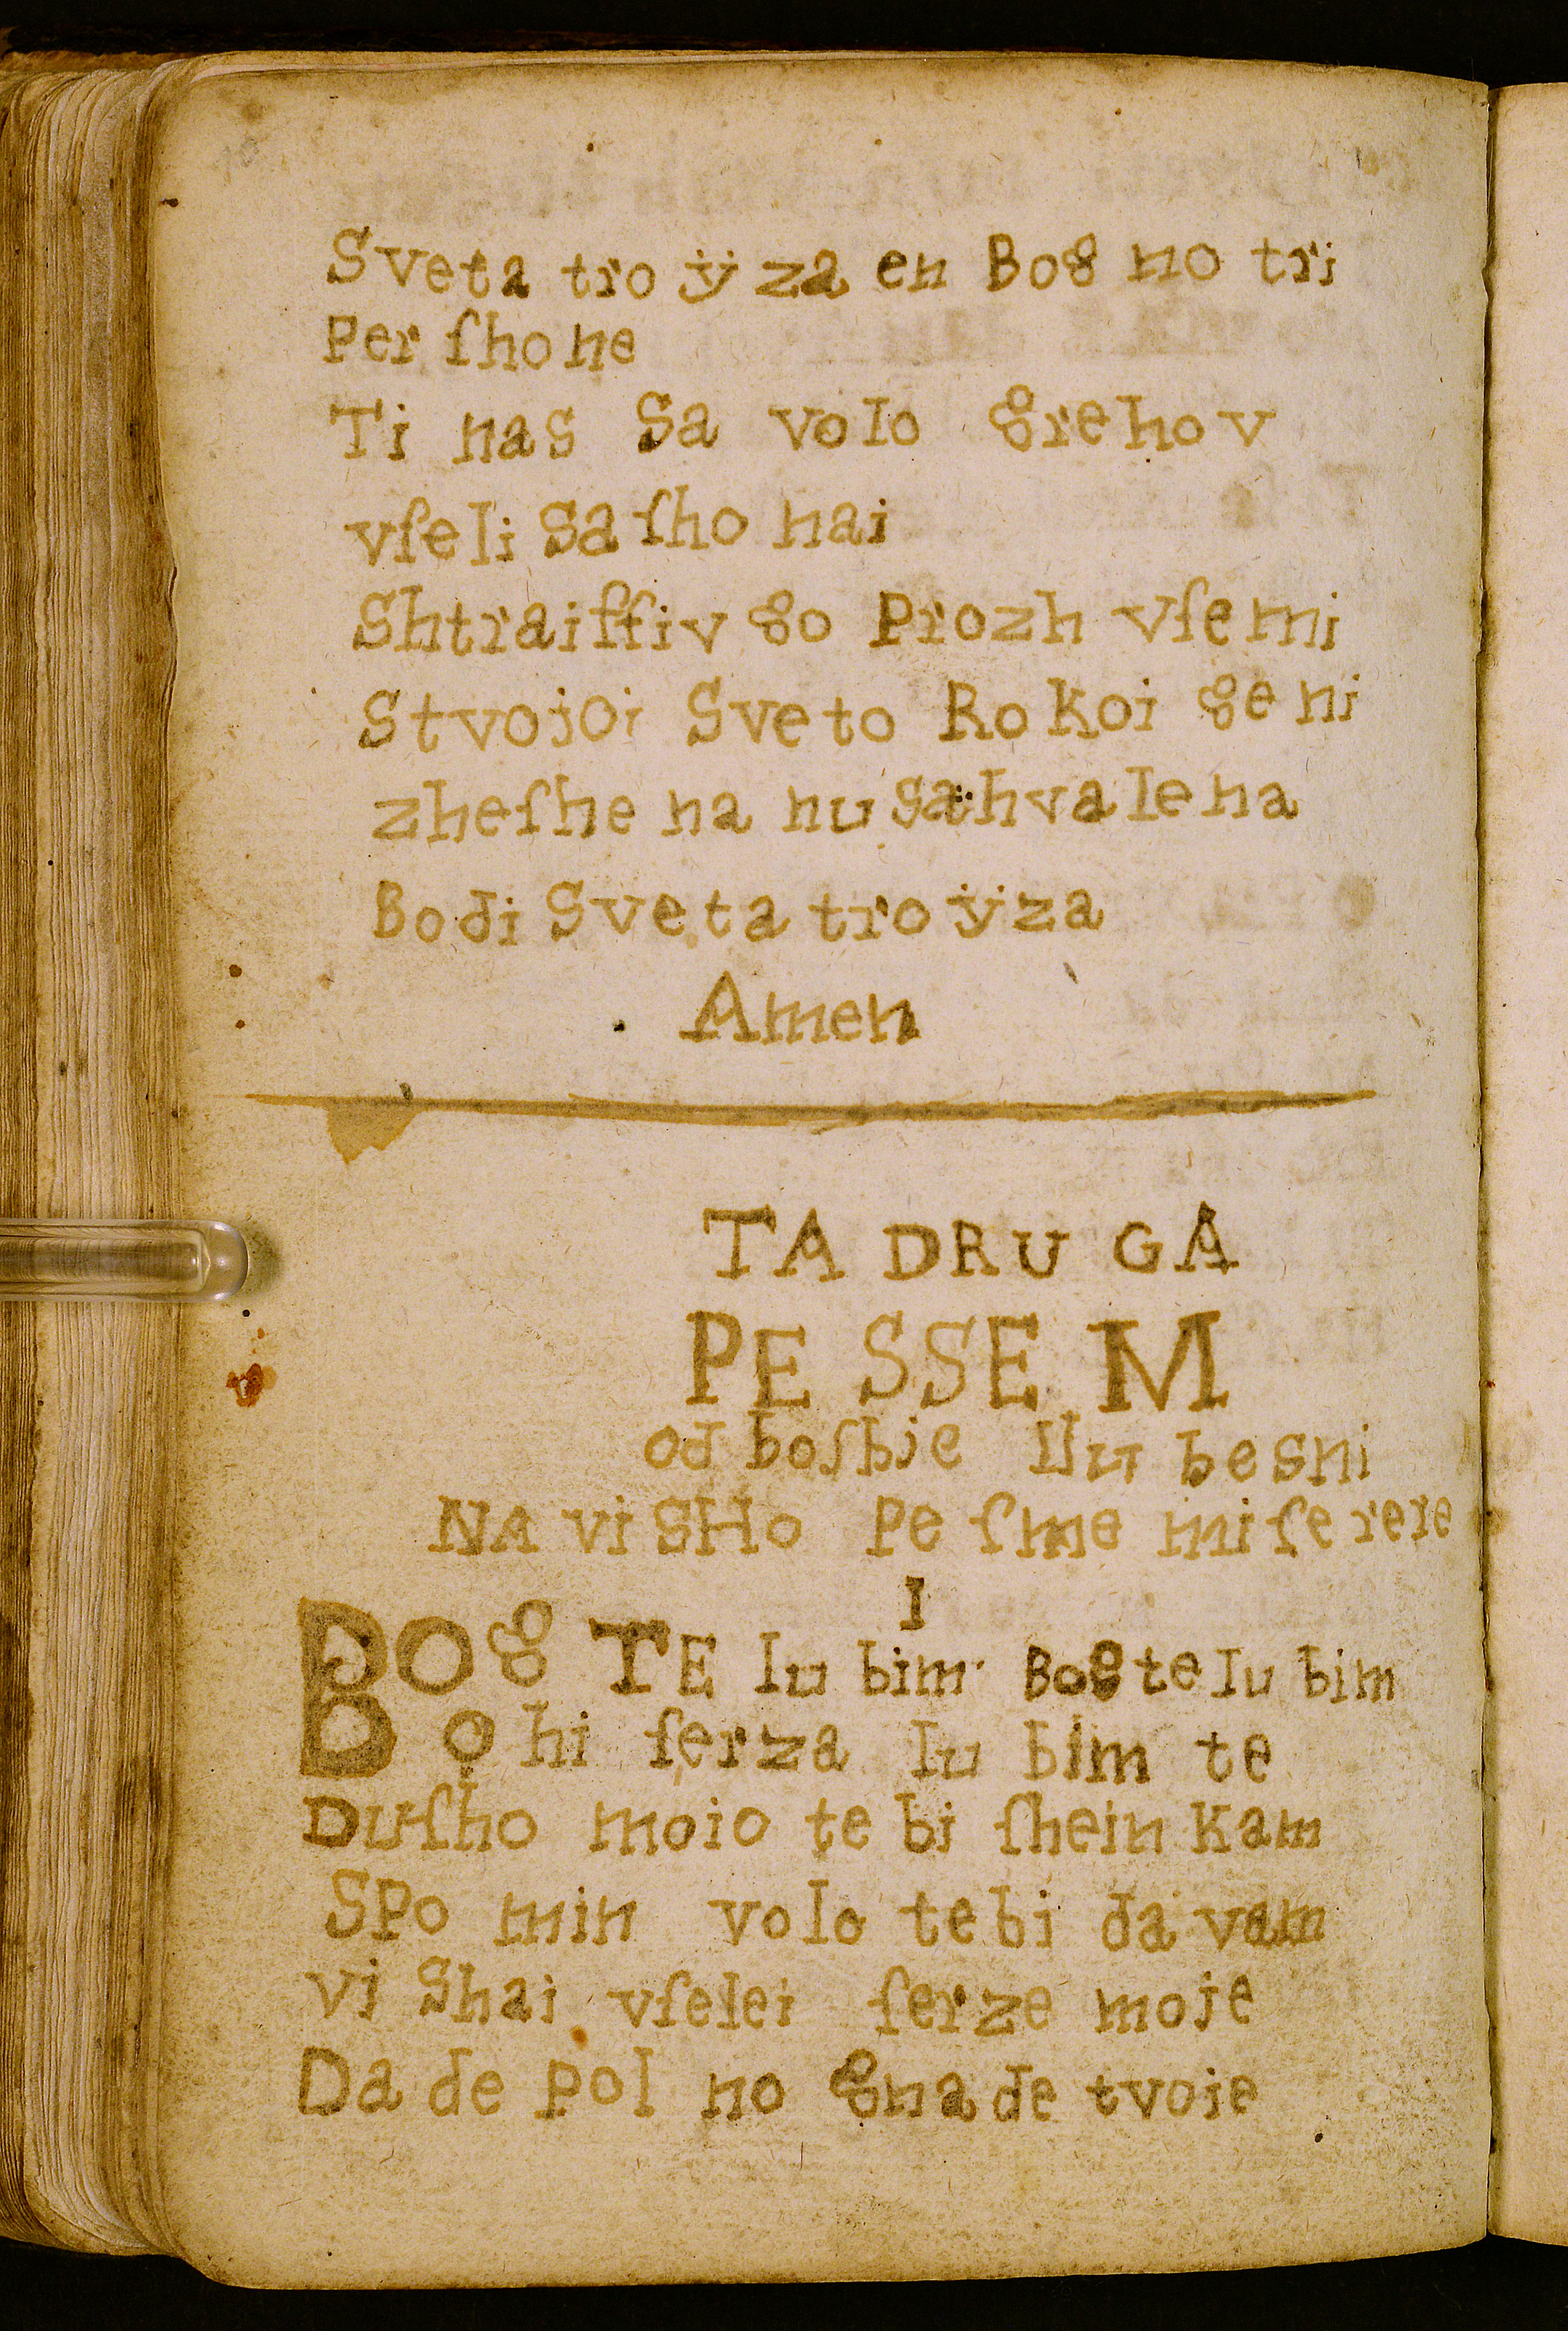 Sveta troÿza en Bog no tri
Perſhone
Ti nas Sa volo grehov
vſeli Saſho nai
Shtraiffiv go Prozh vſemi
Stvojoi Sveto Rokoi geni
zheſhe na nu Sahvalena
Bodi Sveta troÿza
Amen
TA DRUGA
PESSEM
od boſhje lubesni
NA viSHo Peſme miſerere
I
BOg TE lubim Bog te lubim
Q hi ſerza lubim te
Duſho moio tebi ſheinkam
SPomin volo tebi davam
viShai vſelei ſerze moje
Da de Polno gnade tvoie